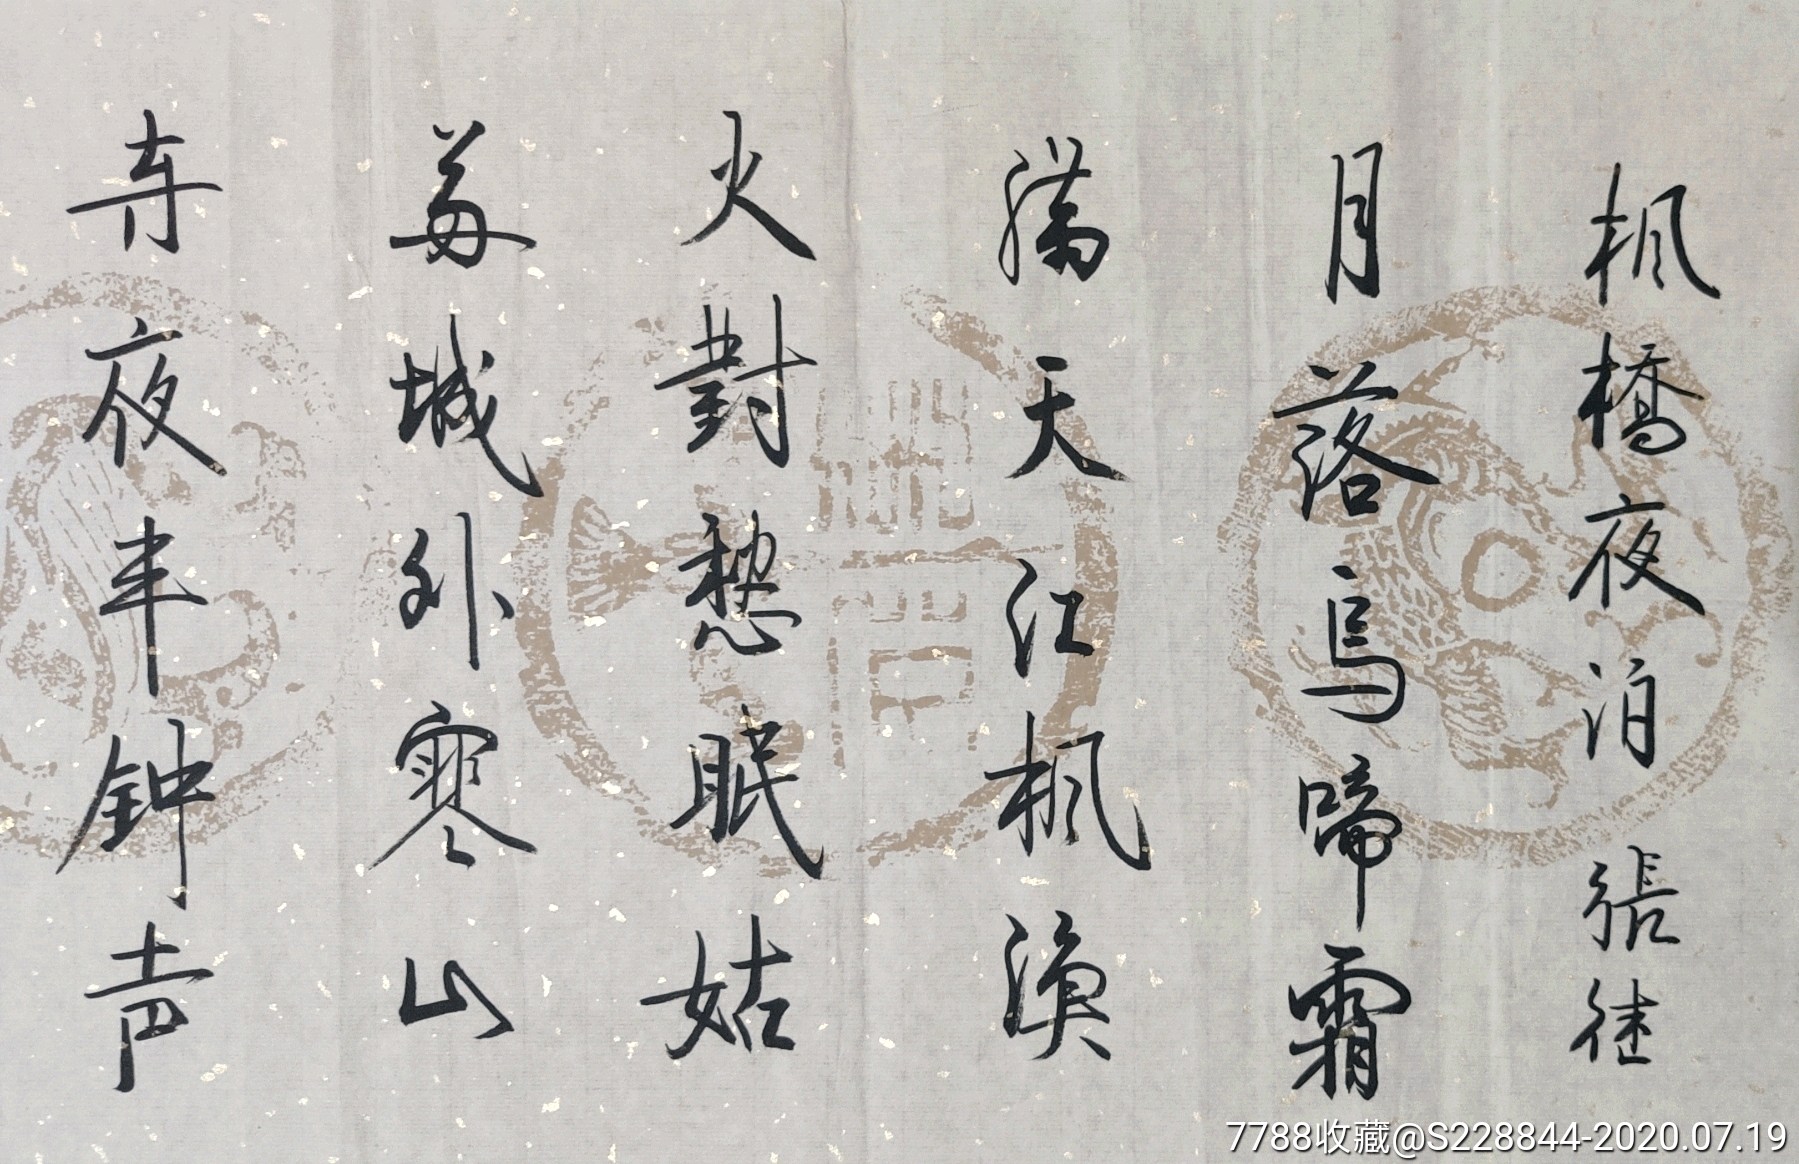 枫橋夜泊 張继
月落烏啼霜
满天江枫渔
火對愁眠姑
苏城外寒山
寺夜半钟声
7788收藏@S228844-2020.07.19